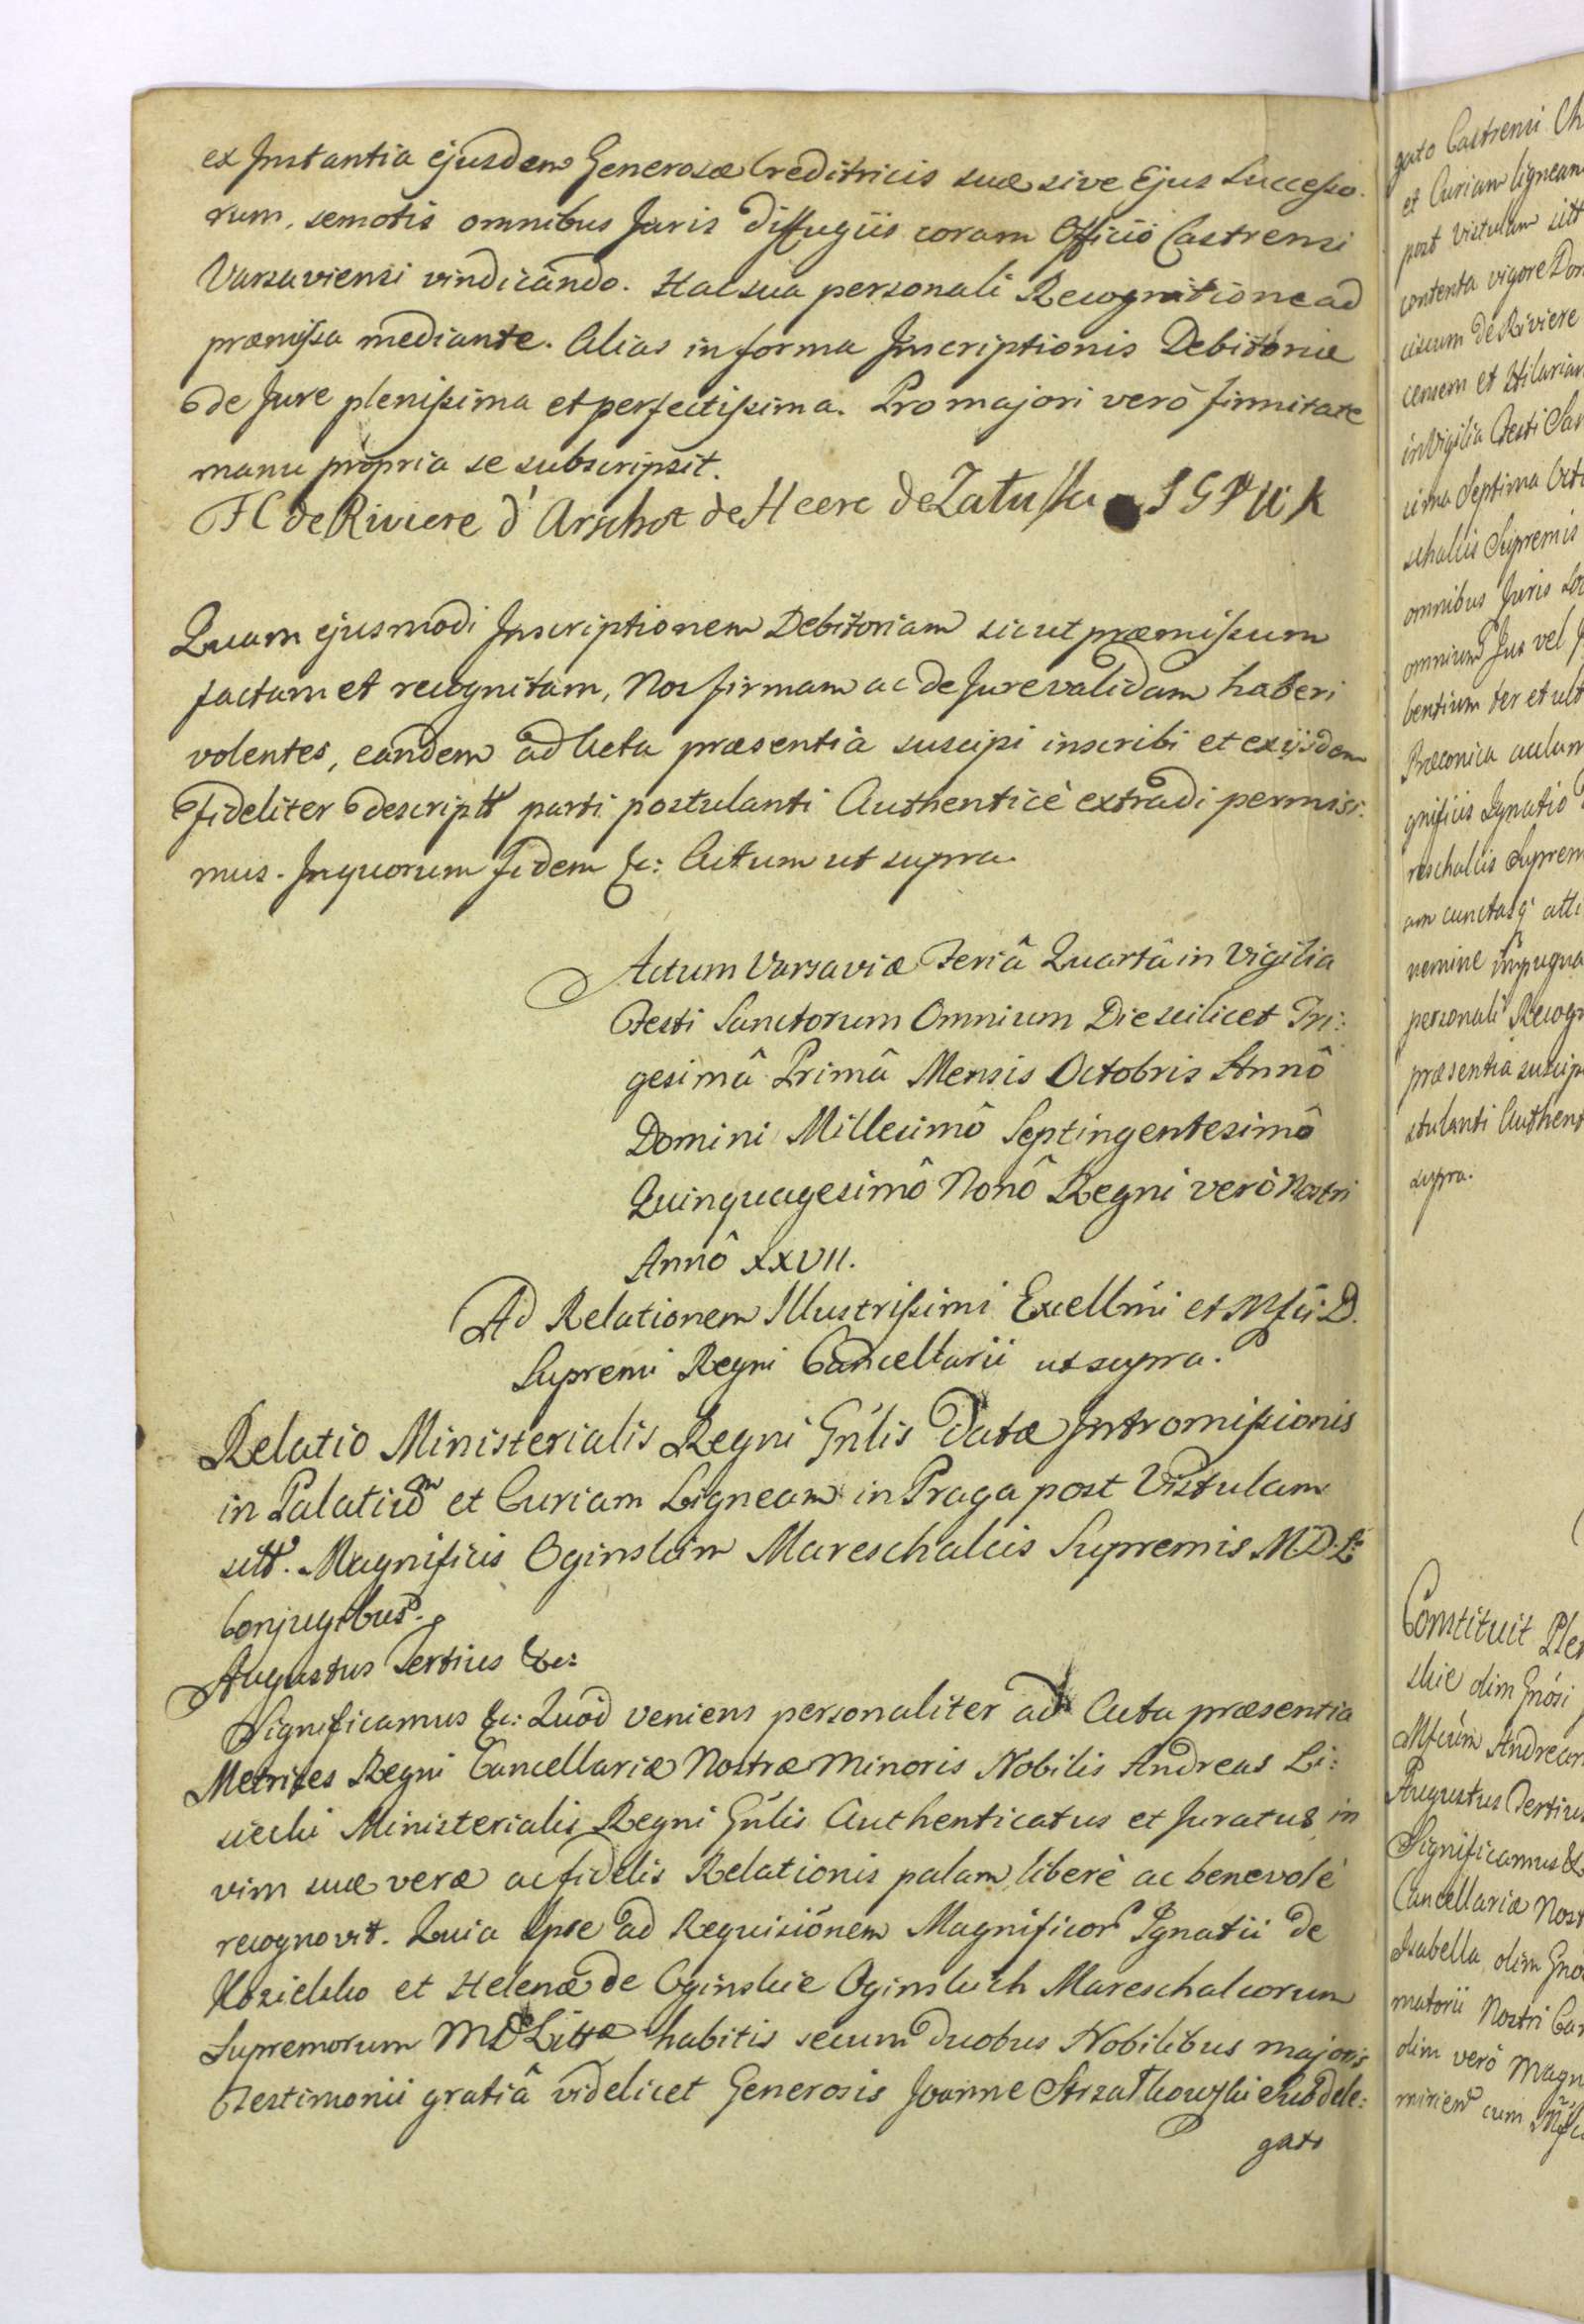 ex Instantia ejusdem Generosæ Creditricis suæ sive Ejus Successo.
rum, semotis omnibus Juris diffugiis coram Officio Castrensi
Varsaviensi vindicando. Hac sua personali Recognitione ad
præmissa mediante. Alias in forma Inscriptionis Debitoriæ
de Jure plenissima et perfectissima. Pro majori verò firmitate
manu propria se subscripsit.
de Riviere d'Arschot de Heere de Zatuski
Quam ejusmodi Inscriptionem Debitoriam sicut præmissum
factam et recognitam, Nos firmam ac de Jure validam haberi
volentes, eandem ad Acta præsentia suscipi inscribi et ex ijsdem
fideliter descriptt parti postulanti Authenticè extradi permisi:
mus. In quorum fidem &c: Actum ut supra.
Actum Varsaviæ Feriâ Quartâ in Vigilia
Festi Sanctorum Omnium Die scilicet Tri:
gesimâ Primâ Mensis Octobris Annô
Domini Millesimô Septingentesimô
Quinquagesimô Nonô Regni verò Nostri
Annô XXVII.
Ad Relationem Illustrissimi Excellmi et Mfci D.
Supremi Regni Cancellarii ut supra.
Relatio Ministerialis Regni Gńlis datæ Intromissionis
in Palatium et Curiam Ligneam in Praga post Vistulam
sitt. Magnificis Oginskim Mareschalcis Supremis M.D.L.
Conjugibus.
Augustus Tertius &c:
Significamus &c: Quod veniens personaliter ad Acta præsentia
Metrices Regni Cancellariæ Nostræ Minoris Nobilis Andreas Li:
siecki Ministerialis Regni Gńlis Authenticatus et Juratus in
vim suæ veræ ac fidelis Relationis palam liberè ac benevolè
recognovit. Quia Ipse ad Requisiónem Magnificor Ignatii de
Kozielsko et Helenæ de Oginskie Oginskich Mareschalcorum
Supremorum M D Littæ habitis secum duobus Nobilibus majoris
Testimonii gratiâ videlicet Generosis Joanne Strzałkowski Subdele:
gato
gato Castrensi
et Curiam ligneam
post Vistulam sitt
contenta vigore
de Riviere
et Hilarian
in Vigilia Festi
Septima
schalcis Supremis
omnibus Juris
omnium Jus vel
bentium ter et ult
Præconica
gnificis Ignatio
reschalcis Suprem
am cunctasq
nemine impugna
personali Recogn
præsentia suscip
stulanti Authent
supra.
Constituit
skie olim Gnosi
Mfcum Andream
Augustus Tertius
Significamus &
Cancellariæ Nost
Isabella olim
matorii Nostri
olim verò Magn
cum